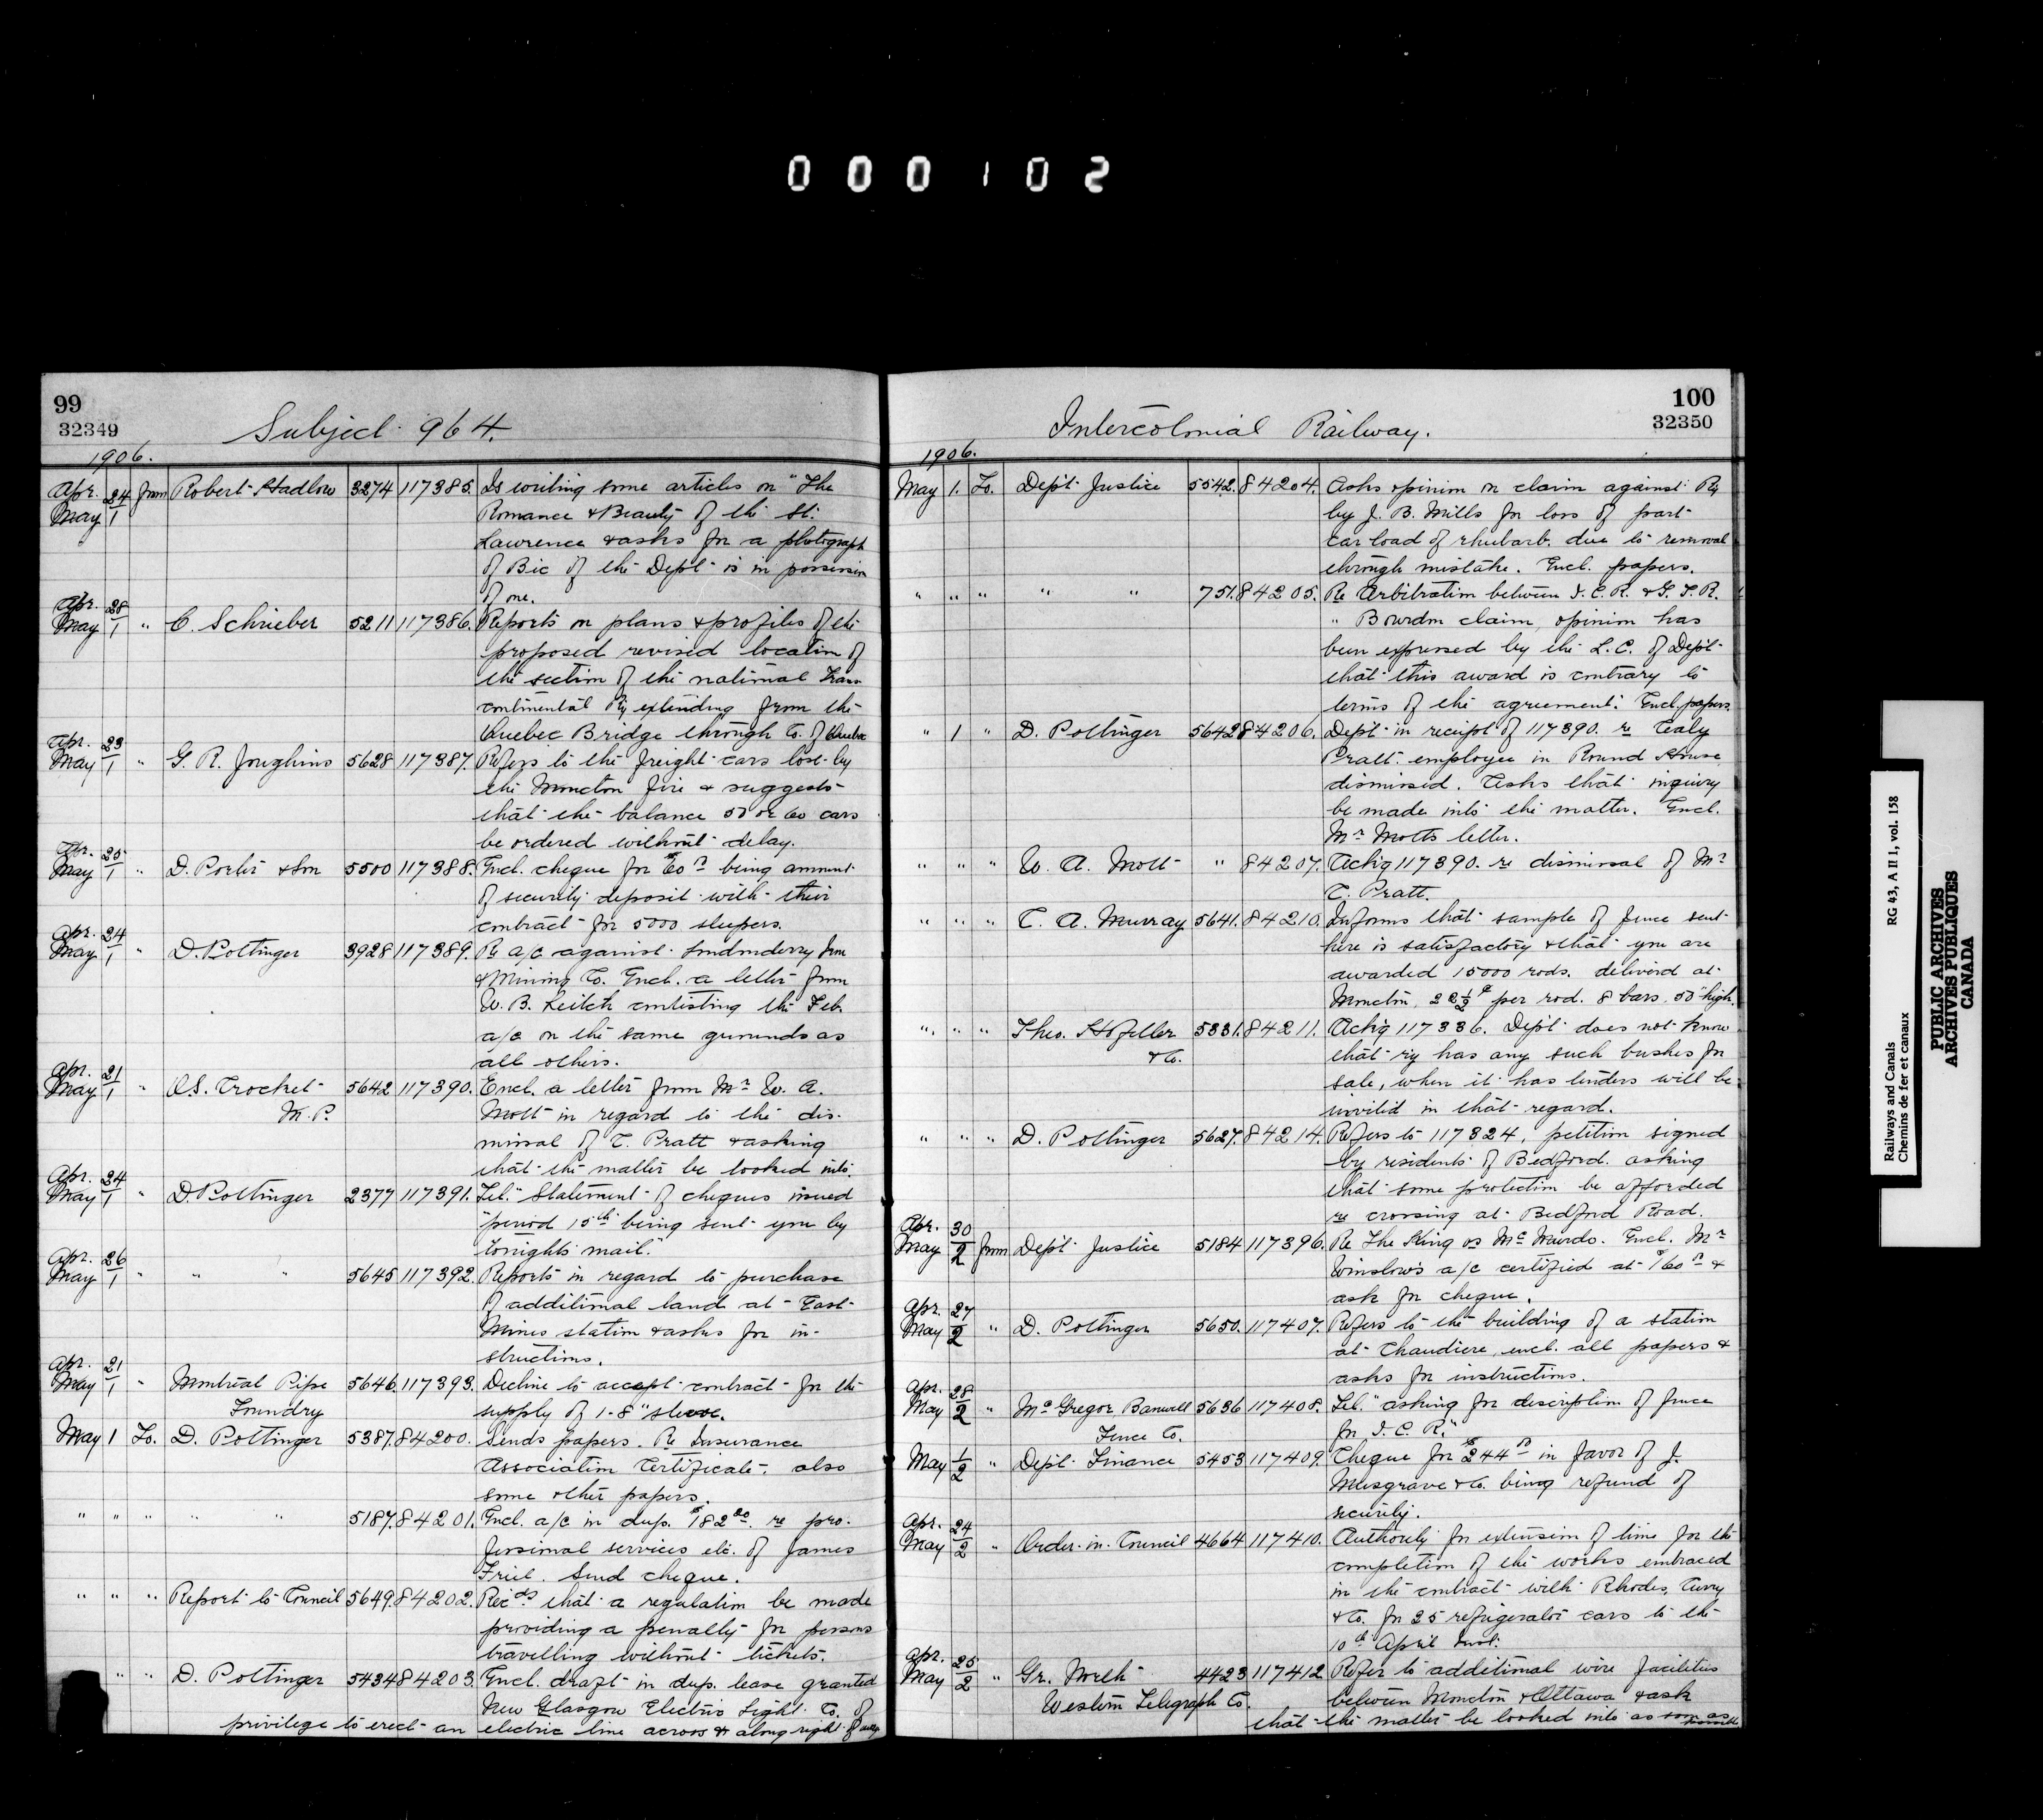 000102
99
32349
Subject 964.
1906.
Apr. 24 from Robert Hadlow 3274 117385. Is writing some articles on "The
May 1 Romance & Beauty of the St.
Lawrence & asks for a photograph
of Bic if the Dept. is in possession
of one.
Apr. 28
May 1 " C. Schrieber 5211 117386. Reports on plans & profiles of the
proposed revised location of
the section of the national Trans
continental Ry extending from the
Quebec Bridge through Co. of Quebec
Apr. 23
May 1 " G. R. Joughins 5628 117387. Refers to the freight cars lost by
the Moncton fire & suggests
that the balance 50 or 60 cars
be ordered without delay.
Apr. 25
May 1 " D. Porter & Son 5500 117388. Encl. cheque for $60 being amount
of security deposit with their
contract for 5000 sleepers.
Apr. 24
May 1 " D. Pottinger 3928 117389. Re a/c against Londonderry Iron
& Mining Co. Encl. a letter from
W. B. Leitch contesting the Feb.
a/c on the same grounds as
all others.
Apr. 21
May 1 " O.S. Crocket 5642 117390. Encl. a letter from Mr W. A.
M.P. Mott in regard to the dis-
missal of C. Pratt & asking
that the matter be looked into.
Apr. 24
May 1 " D. Pottinger 2377 117391. Tel. "Statement of cheques issued
"period 15th being sent you by
tonights mail."
Apr. 26
May 1 " " " 5645 117392. Reports in regard to purchase
of additional land at East
Mines station & asks for in-
structions.
Apr. 21
May 1 " Montreal Pipe 5646. 117393. Decline to accept contract for the
Foundry supply of 1-8" sleeve.
May 1 To. D. Pottinger 5387. 84200. Sends papers. Re Insurance
Association Certificate. also
some other papers.
" " " " " 5187. 84201. Encl. a/c in dup. $182.20 re pro-
fessional services etc. of James
Friel. Send cheque.
" " " Report to Council 5649. 84202. Recds that a regulation be made
providing a penalty for persons
travelling without tickets.
" " D. Pottinger 5434 84203. Encl. draft in dup. lease granted
New Glasgow Electric Light Co. of
privilege to erect an electric line across & along right of way
100
32350
Intercolonial Railway.
1906.
May 1. To. Dept Justice 5542. 84204. Asks opinion on claim against Ry
by J. B. Mills for loss of part
car load of rhubarb due to removal
through mistake. Encl. papers.
" " " " " 751. 84205. Re Arbitration between I.C.R. & G.T.R.
" Bourdon claim, opinion has
been expressed by the L.C. of Dept
that this award is contrary to
terms of the agreement. Encl. papers.
" 1 " D. Pottinger 5642 84206. Dept. in receipt of 117390. re Cealy
Pratt employee in Round House
dismissed. Asks that inquiry
be made into the matter. Encl.
Mr Motts letter.
" " " W. A. Mott " 84207. Ackg 117390. re dismissal of Mr
C. Pratt.
" " " C. A. Murray 5641. 84210. Informs that sample of fence sent
here is satisfactory & that you are
awarded 15000 rods. delivered at
Moncton, 22½¢ per rod. 8 bars. 50" high.
" " " Theo. 5331. 84211. Ackg 117336. Dept does not know
& Co. that ry has any such bushes for
sale, when it has tenders will be
invited in that regard.
" " " D. Pottinger 5627. 84214. Refers to 117324, petition signed
by residents of Bedford. asking
that some protection be afforded
re crossing at Bedford Road.
Apr. 30
May 2 from Dept Justice 5184 117396. Re The King vs McMurdo. Encl. Mr
Winslow's a/c certified at $160 &
ask for cheque.
Apr. 27
May 2 " D. Pottinger 5650. 117407. Refers to the building of a station
at Chaudiere, encl. all papers &
asks for instructions.
Apr. 28
May 2 " McGregor Banwell 5636 117408. Tel. "asking for description of fence
Fence Co. for I.C.R."
May 1/2 " Dept. Finance 5453 117409. Cheque for $244 in favor of J.
Musgrave & Co. being refund of
security.
Apr. 24
May 2 " Order in Council 4664 117410. Authority for extension of time for the
completion of the works embraced
in the contract with Rhodes, Curry
& Co. for 25 refrigerator cars to the
10th April inst.
Apr. 25
May 2 " Gr. North 4423 117412 Refer to additional wire facilities
Western Telegraph Co. between Moncton & Ottawa & ask
that the matter be looked into as soon as
possible
Railways and Canals RG 43, A II 1, vol. 158
Chemins de fer et canaux
PUBLIC ARCHIVES
ARCHIVES PUBLIQUES
CANADA